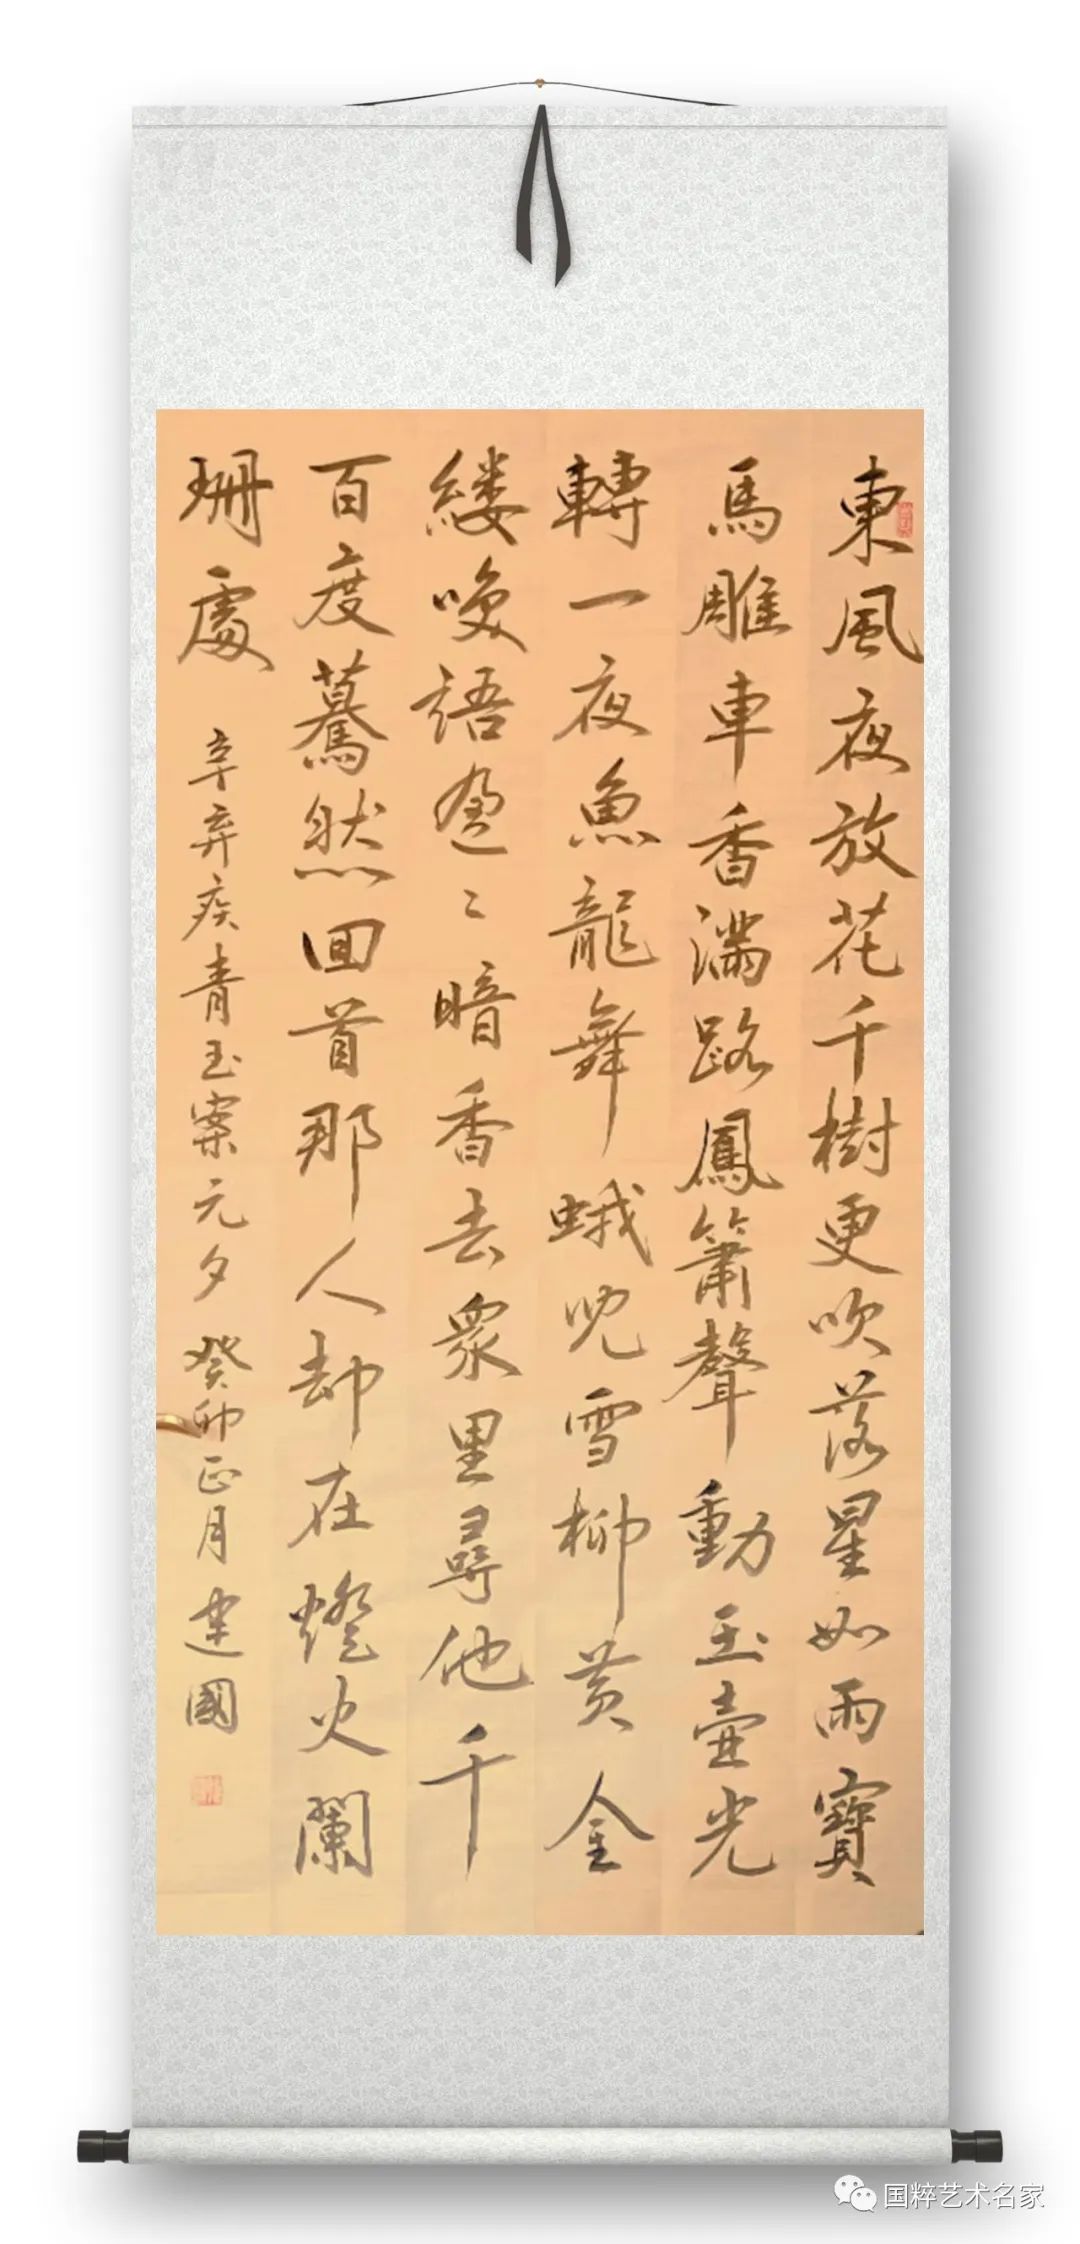 東風夜放花千樹更吹落星如雨寶
馬雕車香滿路鳳簫聲動玉壺光
轉一夜魚龍舞蛾兒雪柳黄金
縷咲語盈〻暗香去衆里尋他千
百度驀然回首那人却在燈火闌
珊處 辛弃疾青玉案元夕 癸卯正月建國
国粹艺术名家